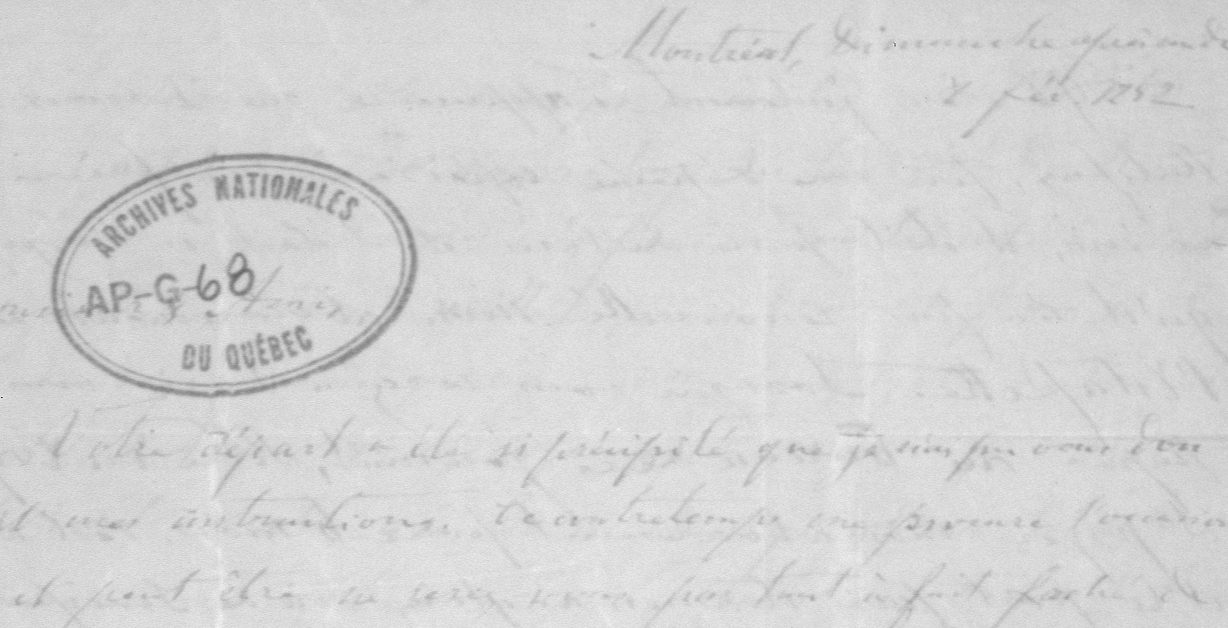 Montréal, Dimanche après midi
2 fév. 1852
ARCHIVES NATIONALES
AP-G-68
DU QUÉBEC
Votre départ a été si précipité que je n'ai pu vous don
mes instructions. Ce contretemps me procure l'occasion
et peut être ne serez vous pas tout à fait faché de